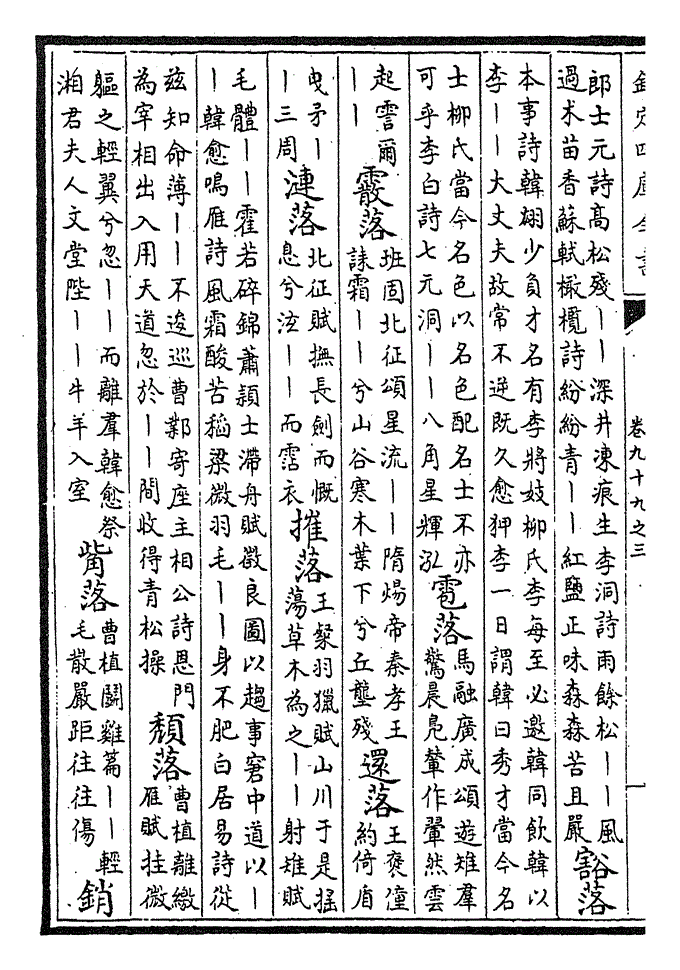 欽定四庫全書
卷九十九之三
一
郎士元詩高松殘丨丨深井凍痕生李洞詩雨餘松丨丨風
過术苗香蘇軾橄欖詩紛紛青丨丨紅鹽正味森森苦且嚴
豁落
本事詩韓翃少負才名有李將妓柳氏李每至必邀韓同飲韓以
李丨丨大丈夫故常不逆既久愈狎李一日謂韓曰秀才當今名
士柳氏當今名色以名色配名士不亦
可乎李白詩七元洞丨丨八角星輝泓
雹落
馬融廣成頌遊雉羣
驚晨鳧輦作翬然雲
起霅爾
丨丨
霰落
班固北征頌星流丨丨隋煬帝秦孝王
誄霜丨丨兮山谷寒木葉下兮丘壟殘
還落
王褒僮
約倚盾
曳矛丨
丨三周
漣落
北征賦撫長劍而慨
息兮泣丨丨而霑衣
摧落
王粲羽獵賦山川于是搖
蕩草木為之丨丨射雉賦
毛體丨丨霍若碎錦蕭穎士滯舟賦徵良圖以趨事窘中道以丨
丨韓愈鳴雁詩風霜酸苦稻粱微羽毛丨丨身不肥白居易詩從
茲知命薄丨丨不逡巡曹鄴寄座主相公詩恩門
為宰相出入用天道忽於丨丨間收得青松操
頹落
曹植離繳
雁賦挂微
軀之輕翼兮忽丨丨而離羣韓愈祭
湘君夫人文堂陛丨丨牛羊入室
觜落
曹植鬭雞篇丨丨輕
毛散嚴距往往傷
銷